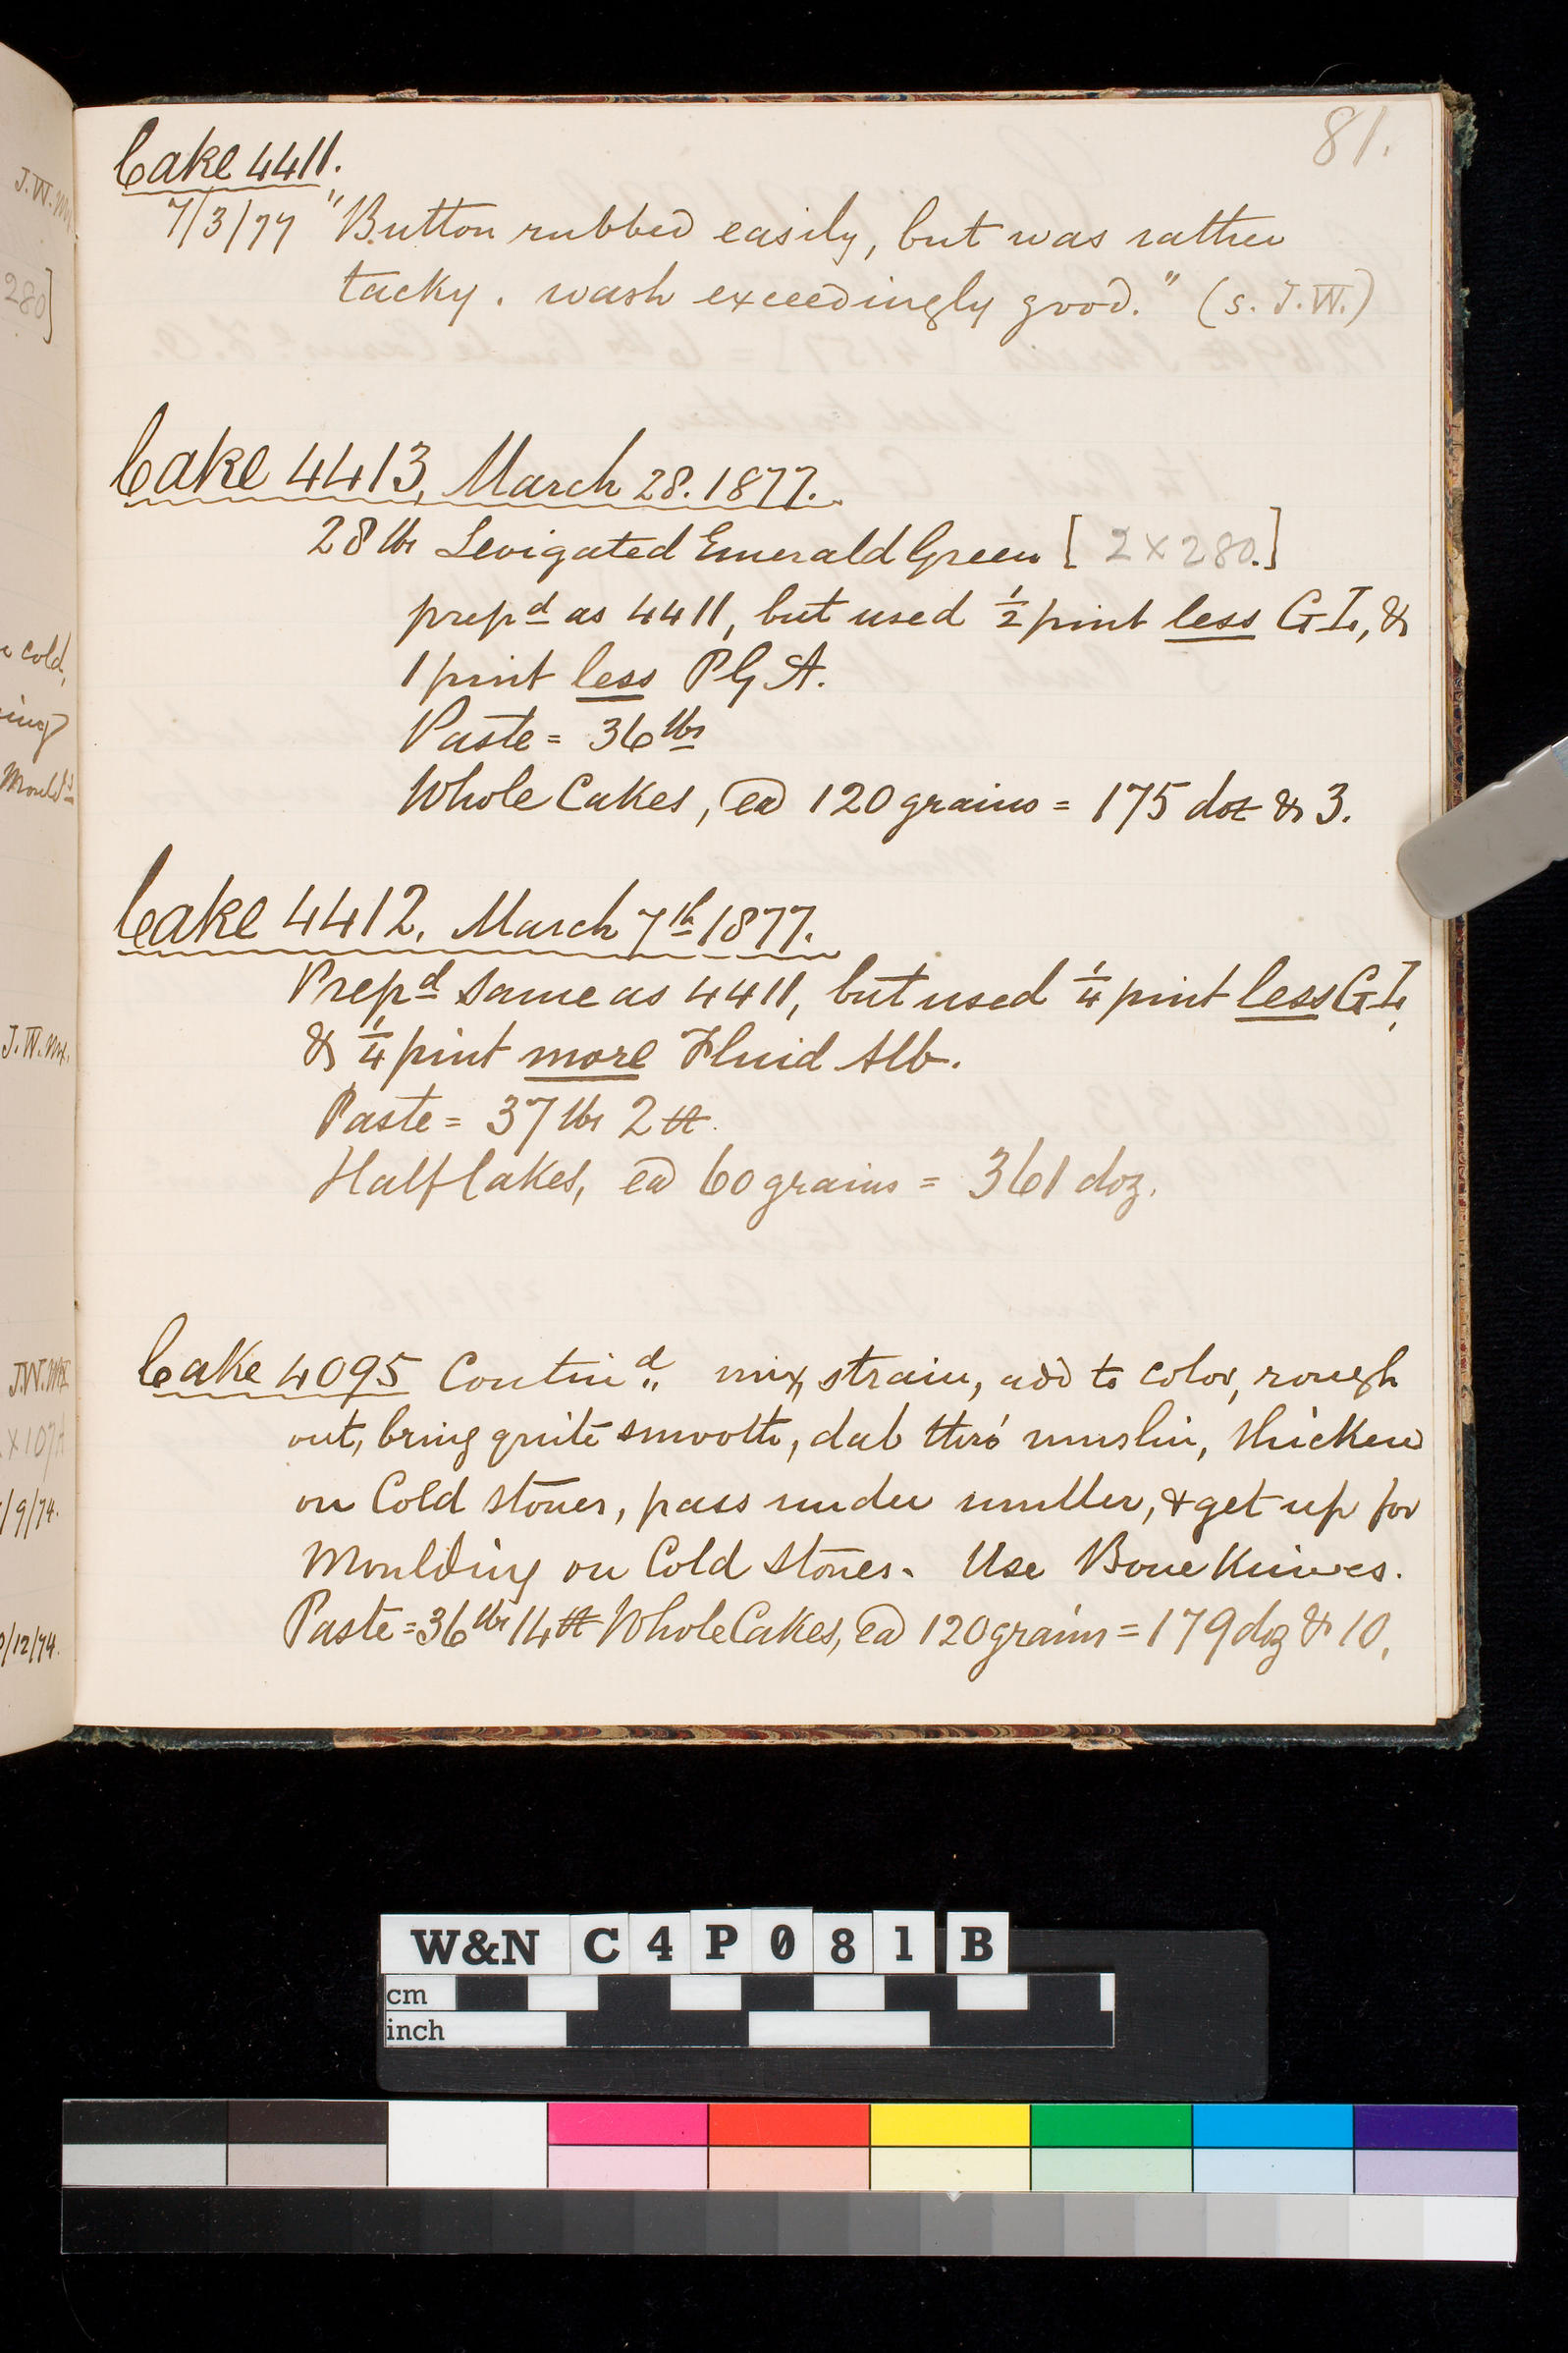 81.
Cake 4411.
7/3/77 "Button rubbed easily, but was rather
tacky. wash exceedingly good." (S. J.W.)
Cake 4413, March 28. 1877.
28 lbs Levigated Emerald Green [2 X 280.]
prepd as 4411, but used ½ pint less GI, &
1 pint less PGA.
Paste = 36 lbs
Whole Cakes, ea 120 grains = 175 doz & 3.
Cake 4412, March 7th 1877.
Prepd same as 4411, but used ¼ pint less GI,
& ¼ pint more Fluid Alb.
Paste = 37 lbs 2
Half Cakes, ea 60 grains = 361 doz.
Cake 4095 Contind. mix, strain, add to color, rough
out, bring quite smooth, dab thro' muslin, thicken
on Cold stones, pass under muller, & get up for
Moulding on Cold stones. Use Bone Knives.
Paste = 36 lbs 14 Whole Cakes, ea 120 grains = 179 doz & 10.
280]
cold,
J.W.
J.W.
/9/74.
/12/74.
W&N C4P081B
cm
inch